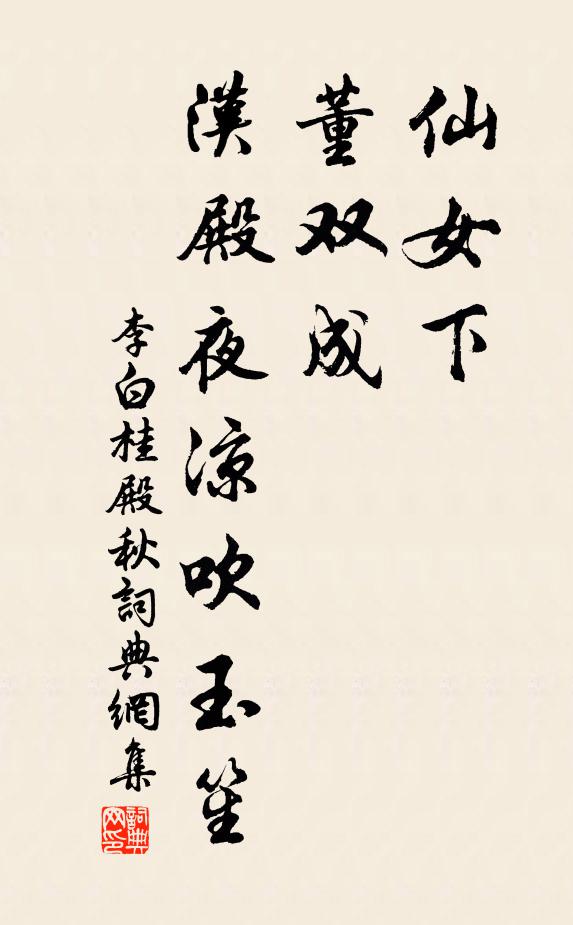 仙女下
董双成
漢殿夜涼吹玉笙
李白桂殿秋詞典網集
詞典
网印